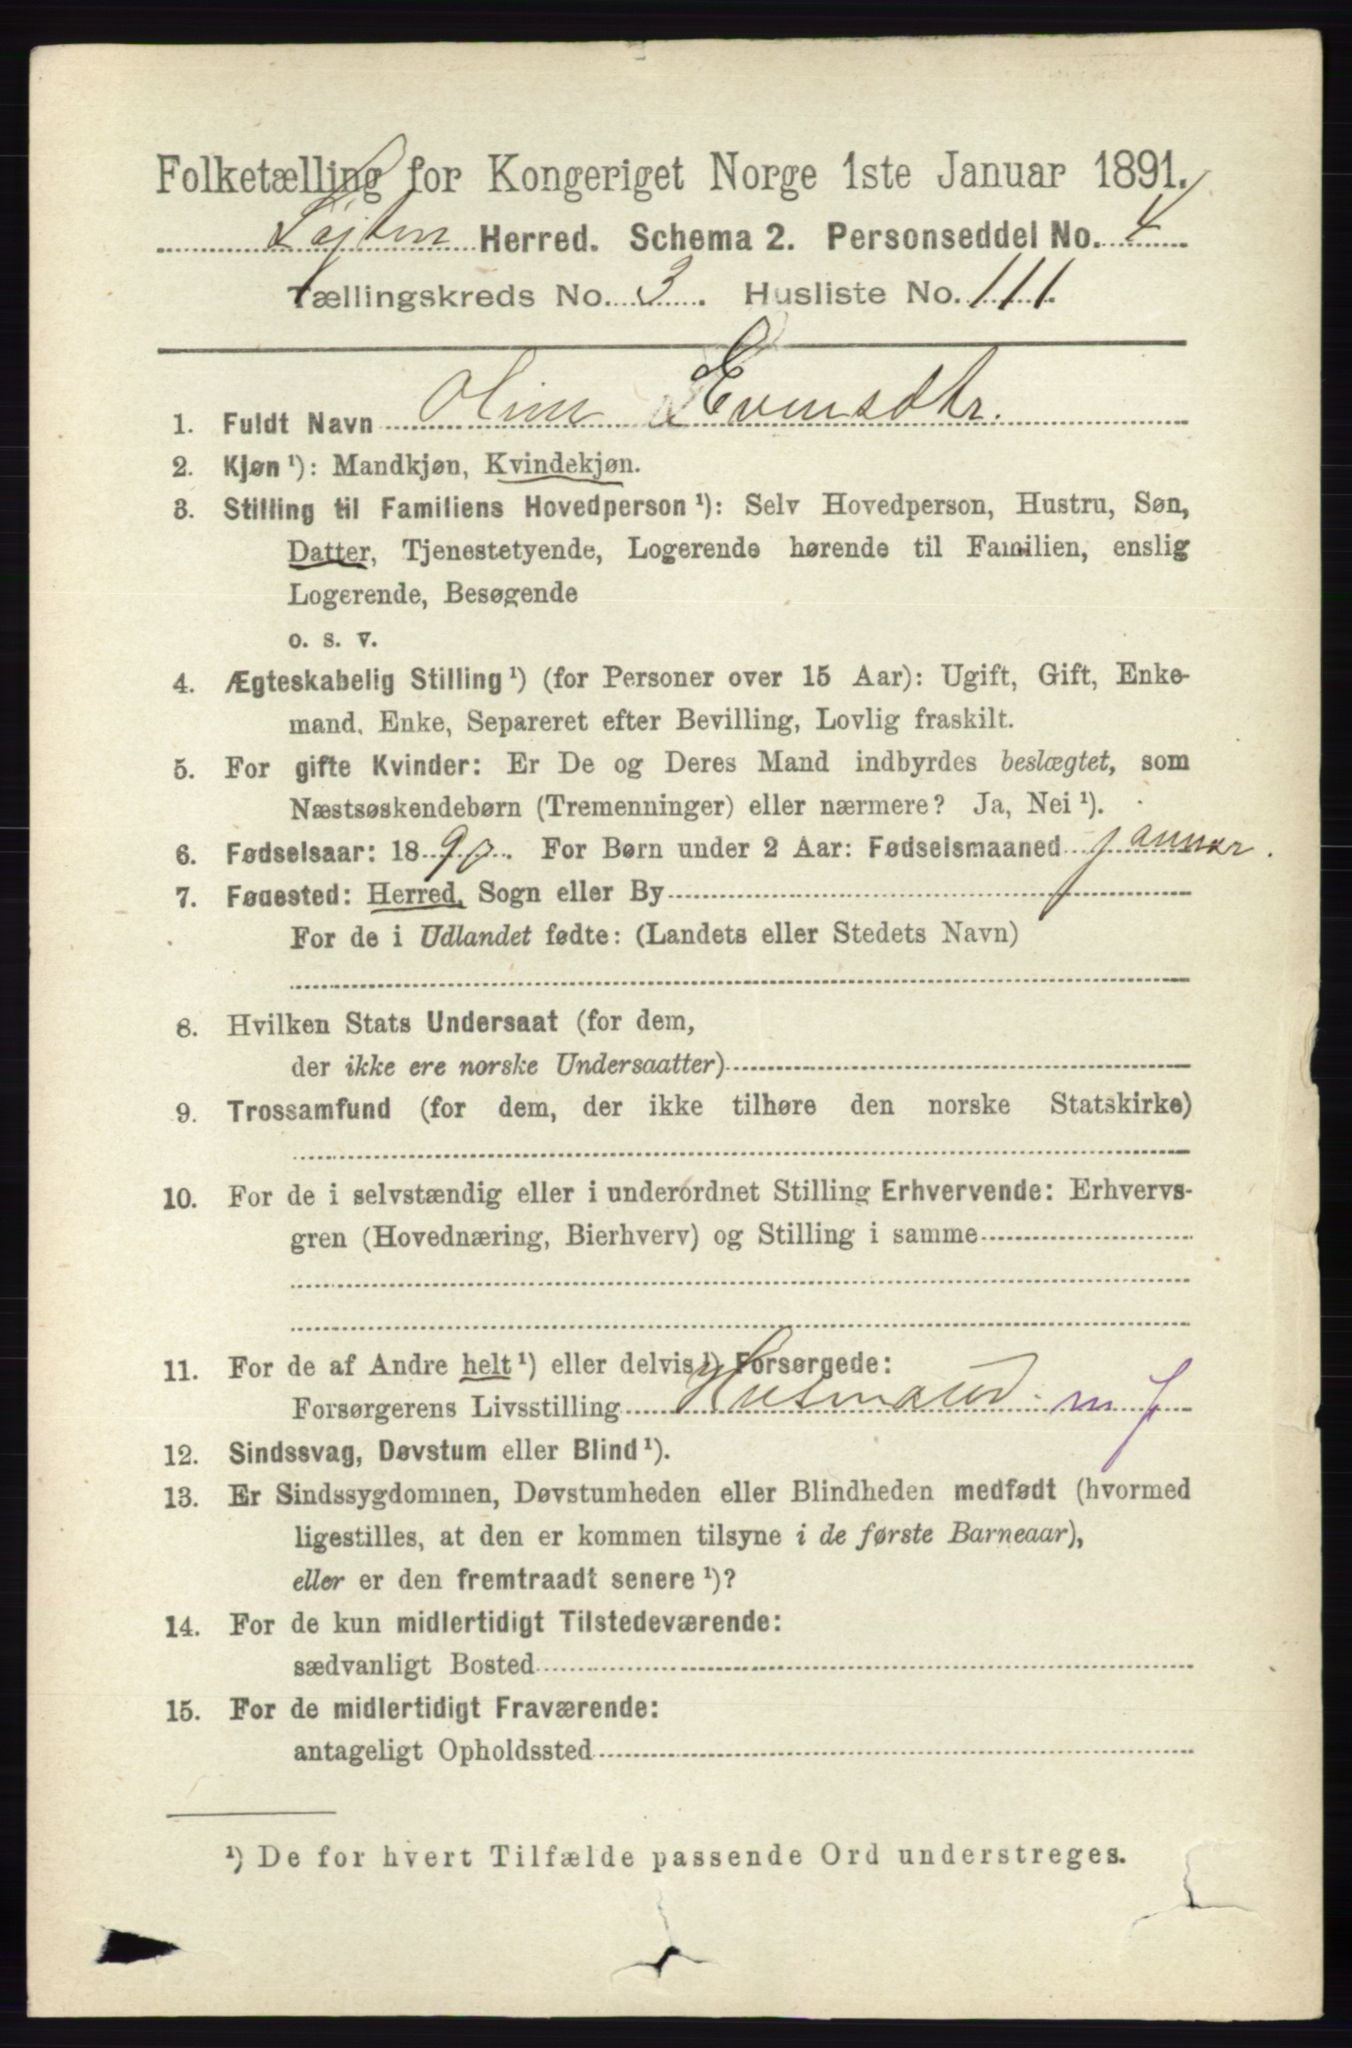 Folketælling for Kongeriget Norge 1ste Januar 1891.
Løjten Herred. Schema 2. Personseddel No. 4
Tællingskreds No. 3. Husliste No. 111
1. Fuldt Navn Oline Evensdtr.
2. Kjøn ¹): Mandkjøn, Kvindekjøn.
3. Stilling til Familiens Hovedperson ¹): Selv Hovedperson, Hustru, Søn,
Datter, Tjenestetyende, Logerende hørende til Familien, enslig
Logerende, Besøgende
o. s. v.
4. Ægteskabelig Stilling ¹) (for Personer over 15 Aar): Ugift, Gift, Enke-
mand, Enke, Separeret efter Bevilling, Lovlig fraskilt.
5. For gifte Kvinder: Er De og Deres Mand indbyrdes beslægtet, som
Næstsøskendebørn (Tremenninger) eller nærmere? Ja, Nei ¹).
6. Fødselsaar: 1890. For Børn under 2 Aar: Fødselsmaaned januar.
7. Fødested: Herred, Sogn eller By
For de i Udlandet fødte: (Landets eller Stedets Navn)
8. Hvilken Stats Undersaat (for dem,
der ikke ere norske Undersaatter)
9. Trossamfund (for dem, der ikke tilhøre den norske Statskirke)
10. For de i selvstændig eller i underordnet Stilling Erhvervende: Erhvervs-
gren (Hovednæring, Bierhverv) og Stilling i samme
11. For de af Andre helt ¹) eller delvis ¹) Forsørgede:
Forsørgerens Livsstilling Husmand m j
12. Sindssvag, Døvstum eller Blind ¹).
13. Er Sindssygdommen, Døvstumheden eller Blindheden medfødt (hvormed
ligestilles, at den er kommen tilsyne i de første Barneaar),
eller er den fremtraadt senere ¹)?
14. For de kun midlertidigt Tilstedeværende:
sædvanligt Bosted
15. For de midlertidigt Fraværende:
antageligt Opholdssted
¹) De for hvert Tilfælde passende Ord understreges.